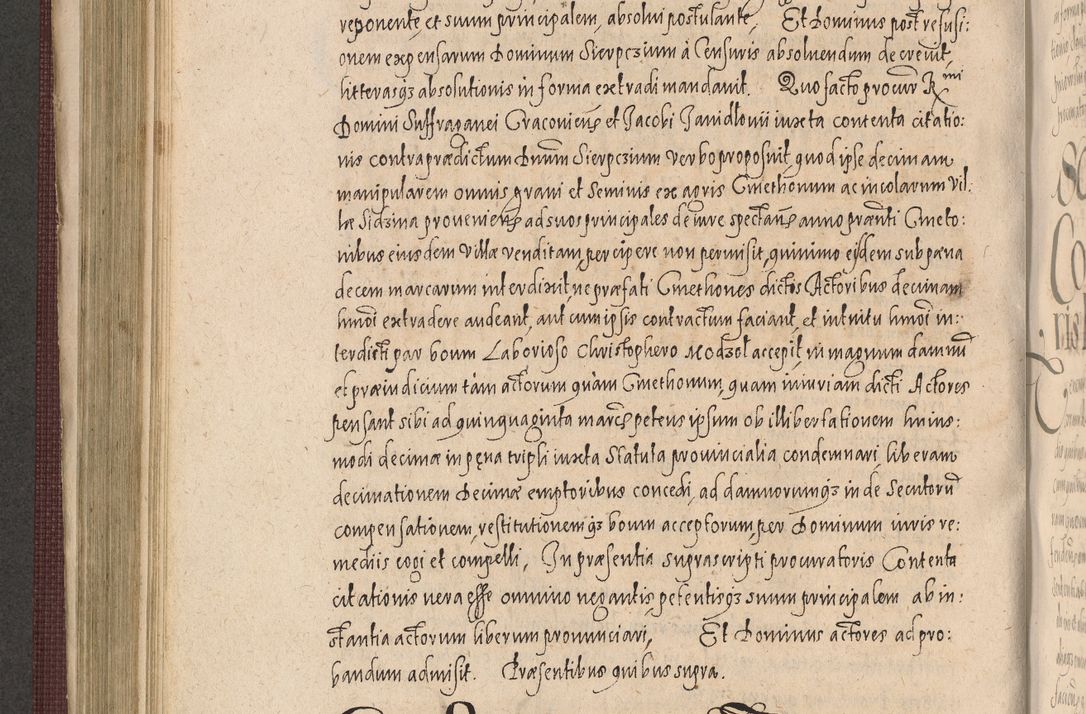 reponente, et suum principalem, absolui postulante, Et Dominus post refusi:
onem expensarum Dominum Sierpczium à Censuris absoluendum decreuit,
litterasq3 absolutionis in forma extradi mandauit. Quo facto procur R mi
Domini Suffraganei Cracouien̄ et Jacobi Janidlouii iuxta contenta citatio:
nis contra prædictum Dnūm Sierpczium verbo proposuit, quod ipse decimam
manipularem omnis grani et Seminis ex agris Cmethonum ac incolarum Vil:
læ Sidzina prouenien̄ ad suos principales de iure spectan̄ anno prænti Cmeto:
nibus eiusdem Villæ venditam, percipere non permisit, quinimo eisdem sub pæna
decem marcarum interdixit, ne præfati Cmethones dictos Actoribus decimam
hmōi extradere audeant, aut cum ipsis contractum faciant, et intuitu hmōi in:
terdicti par boum Laborioso Christophero Modzol accepit, in magnum damnū
et præiudicium tàm actorum quàm Cmethonum, quam iniuriam dicti Actores
pensant sibi ad quinquaginta marc̄ petens ipsum ob illibertationem huius:
modi decimæ in pęna tripli iuxta Statuta prouincialia condemnari, liberam
decimationem Decimæ emptoribus concedi, ad damnorumq3 inde Secutorū
compensationem, restitutionemq3 boum acceptorum, per Dominum iuris re:
mediis cogi et compelli, In præsentia suprascripti procuratoris Contenta
citationis uera esse omnino negantis, petentisq3 suum principalem ab in:
stantia actorum liberum pronunciari, Et Dominus actores ad pro:
bandum admisit. Præsentibus quibus supra.